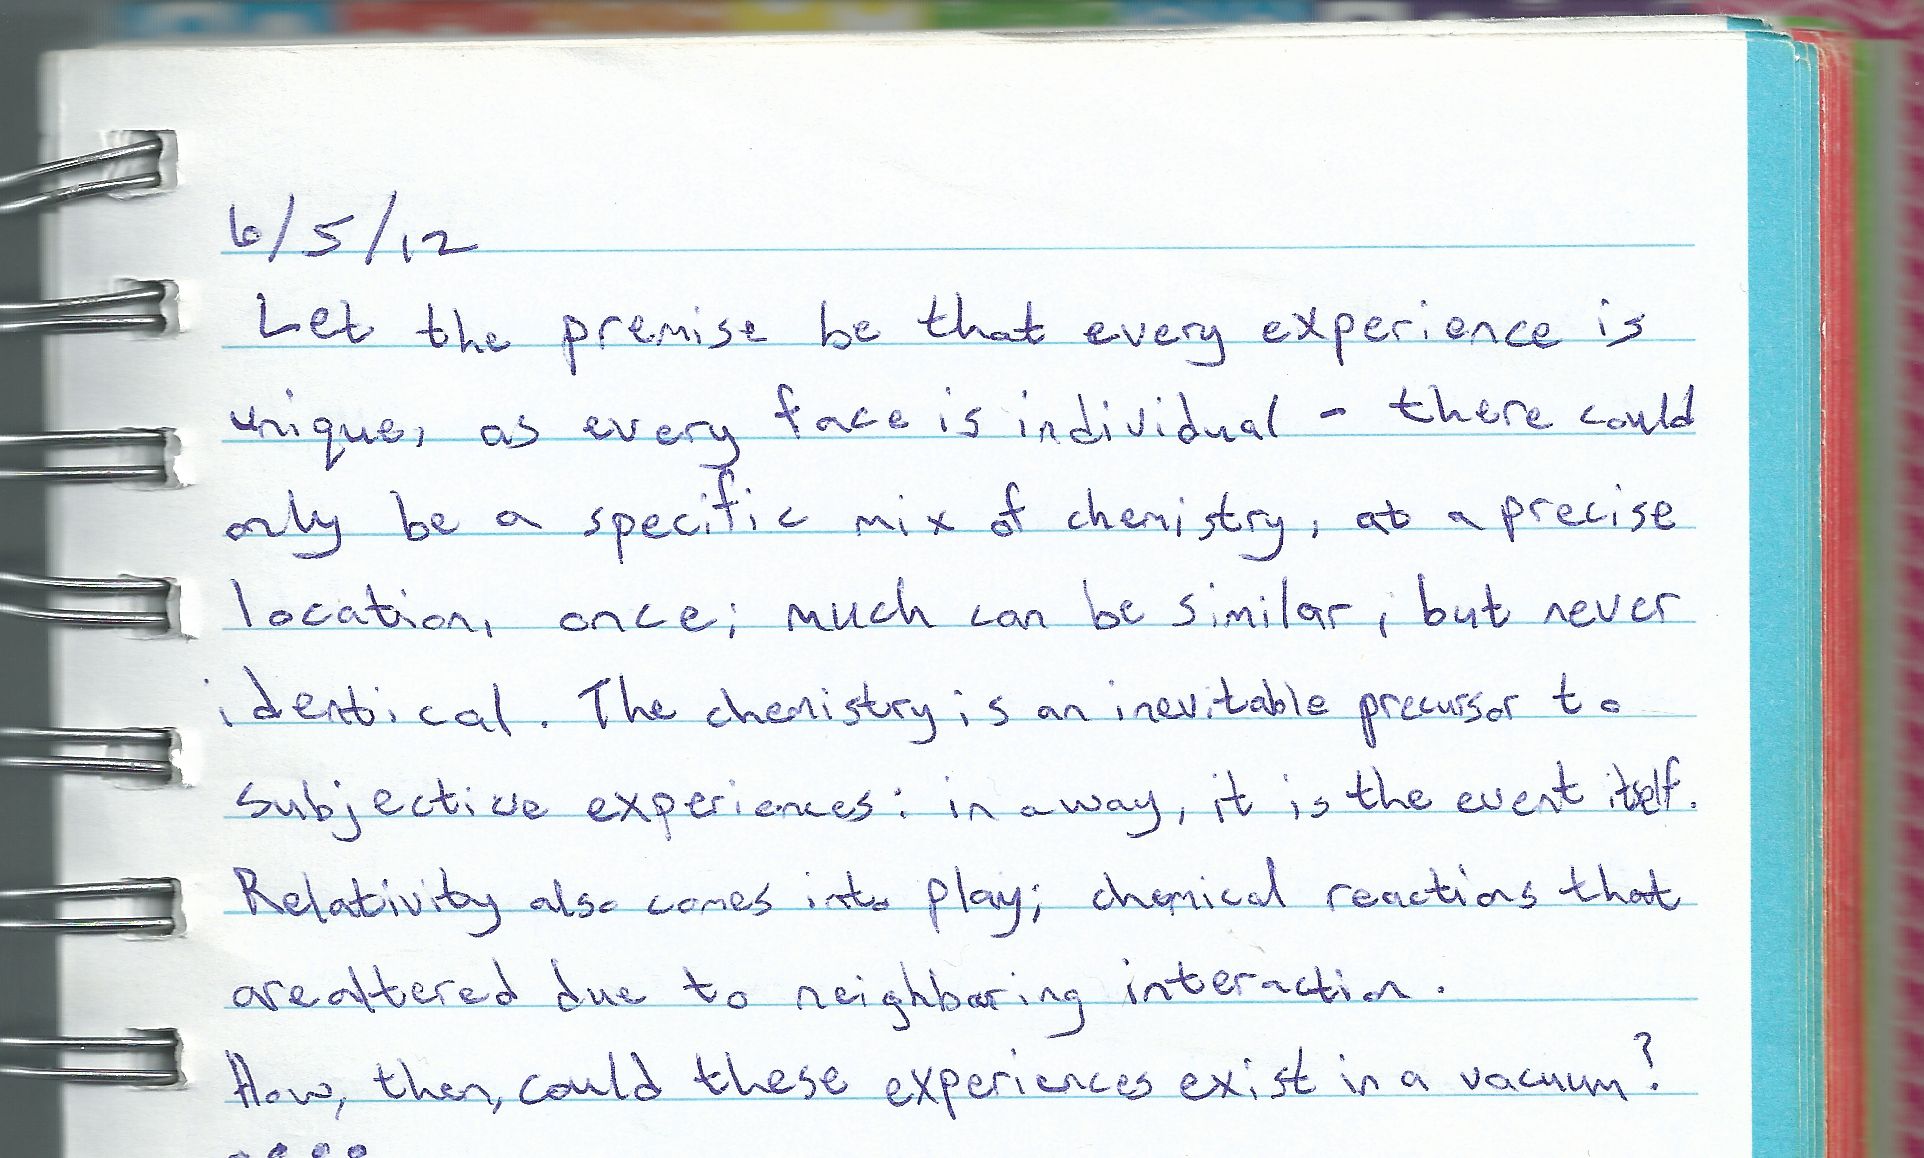 6/5/12
Let the premise be that every experience is
unique, as every face is individual - there could
only be a specific mix of chemistry, at a precise
location, once; much can be similar, but never
identical. The chemistry is an inevitable precursor to
subjective experiences: in a way, it is the event itself.
Relativity also comes into play; chemical reactions that
are altered due to neighboring interaction.
How, then, could these experiences exist in a vacuum?